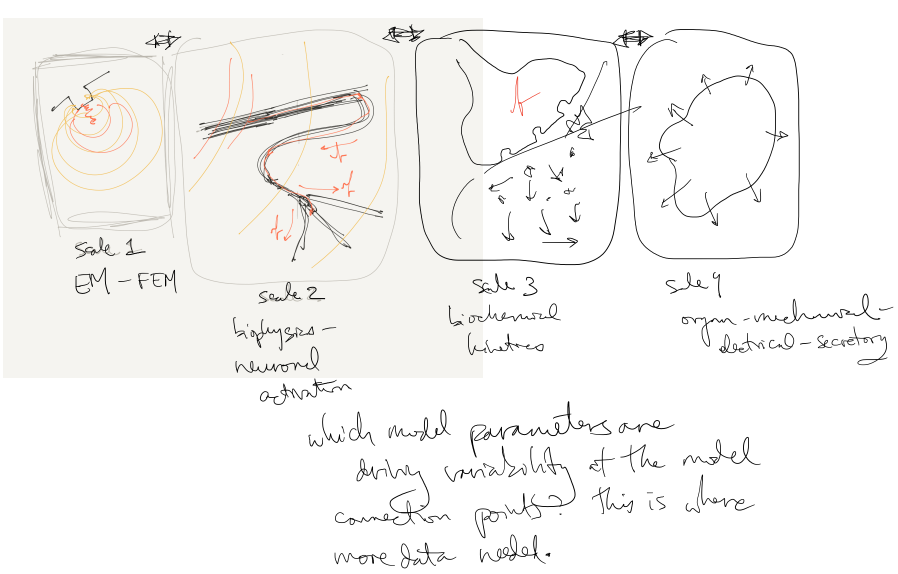 scale 1
EM - FEM
scale 2
biophysics -
neuronal
activation
scale 3
biochemical
kinetics
scale 4
organ - mechanical -
electrical - secretory
which model parameters are
driving variability at the model
connection points? this is where
more data needed.